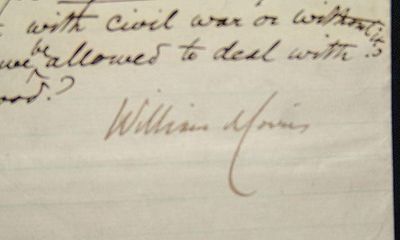 with civil war or without it?
be
we allowed to deal with
William Morris